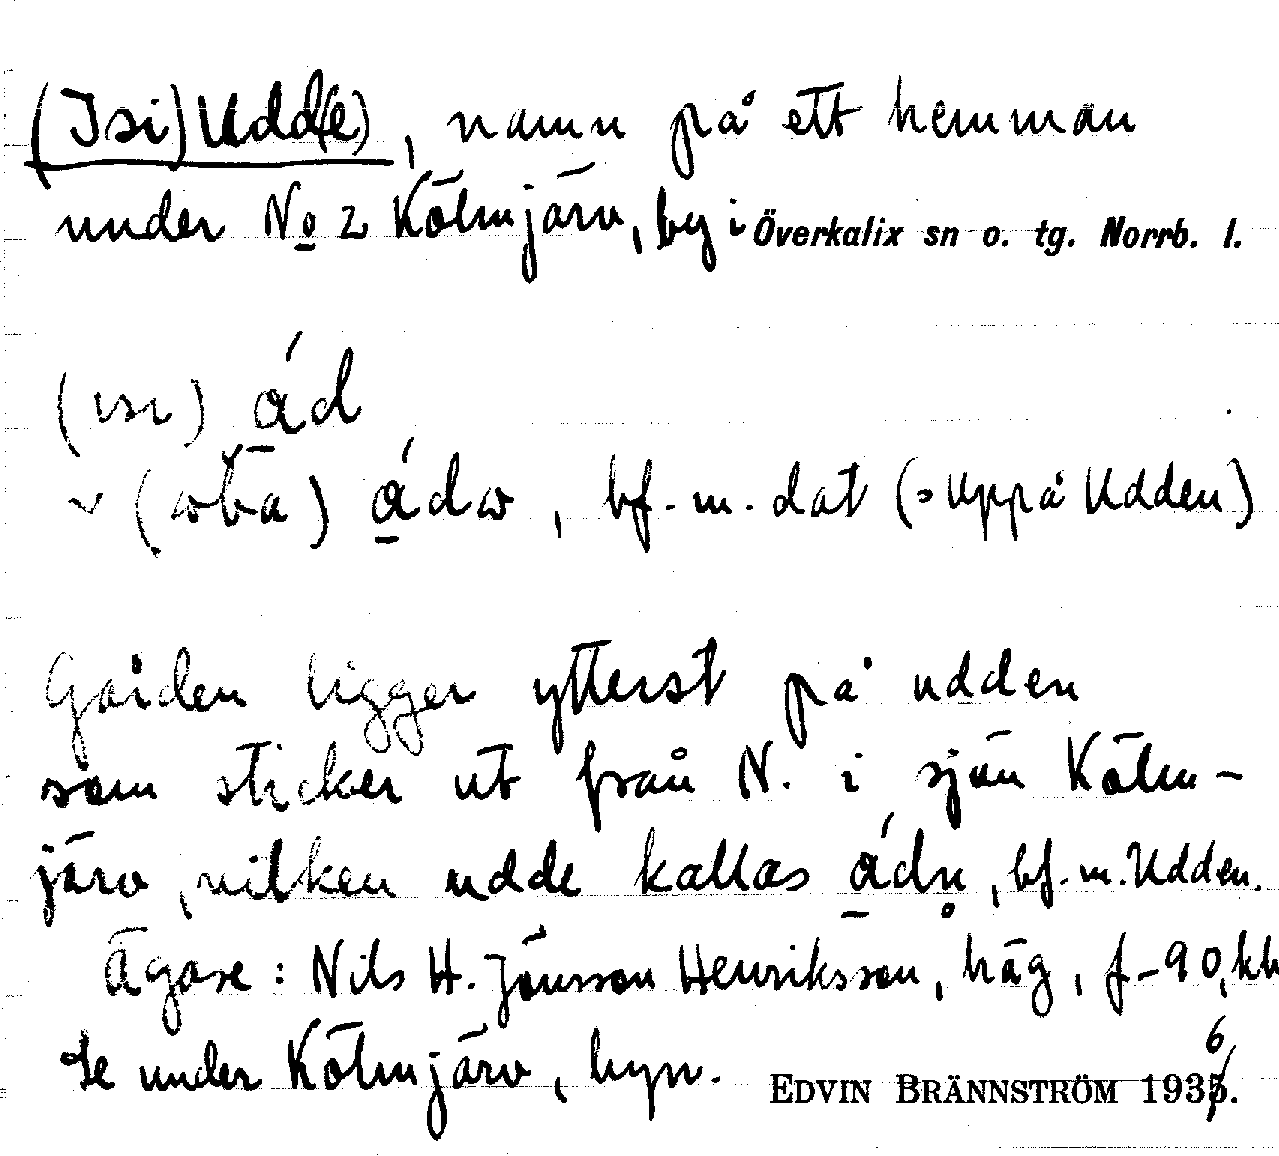 (Isi)Udd(e), namn på ett hemman
under No 2 Kölmjärv, by i Överkalix sn o. tg. Norrb. l.
(ısı) ád
v (ωba) ádω, bf. m. dat (= Uppå Udden)
Gården ligger ytterst på udden
som sticker ut från N. i sjön Kölm-
järv, vilken udde kallas ádn̥, bf. m. Udden.
Ägare: Nils H. Jönsson Henriksson, häg, f -90, kh
Se under Kölmjärv, byn. EDVIN BRÄNNSTRÖM 1936.